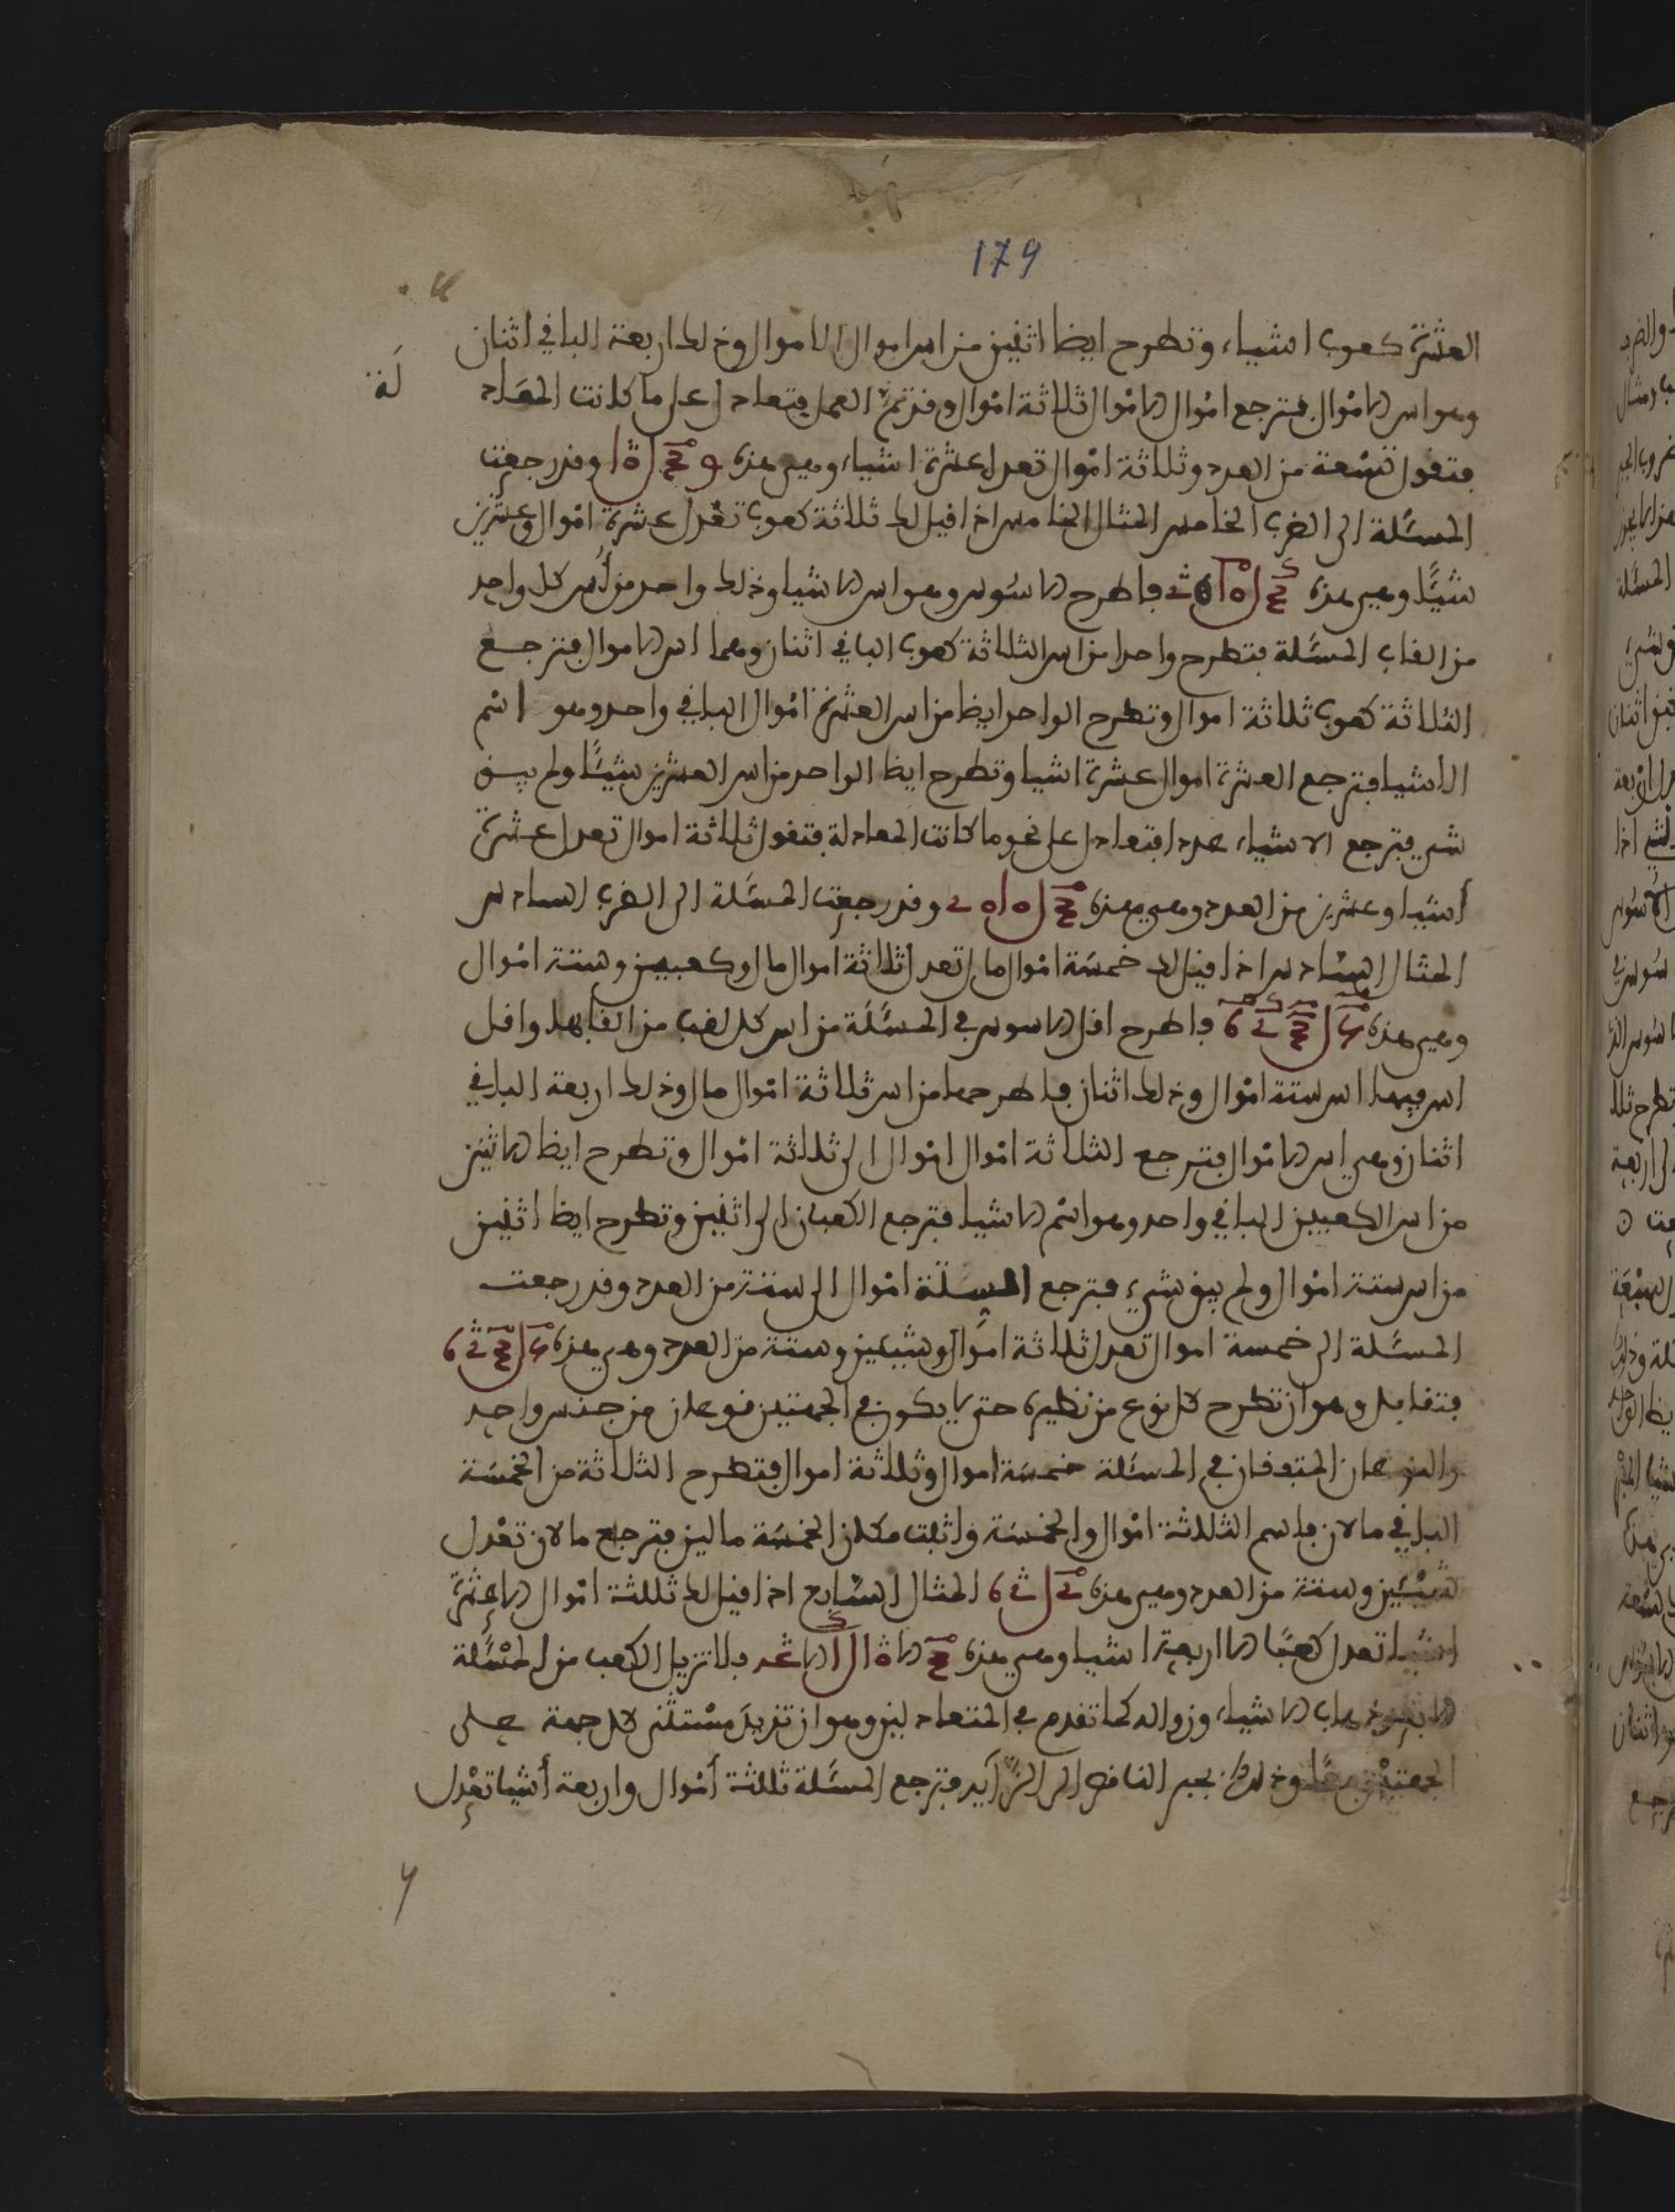 179
العشرة كعوب اشياء وتطرح ايضا اثنين من اس اموال الاموال وذلك اربعة الباقي اثنان
وهو اس الاموال فترجع اموال الاموال ثلاثة اموال وقد تم العمل فتعادل على ما كانت المعاد لة
فتقول تسعة من العدد وثلاثة اموال تعدل عشرة اشياء وهي هذه وقد رجعت
المسئلة الى الضرب الخامس المثال الخامس اذا قيل لك ثلاثة كعوب تعدل عشرة اموال وعشرين
شيئا وهي هذه فاطرح الاسوس وهو اس الاشيا وذلك واحد من أس كل واحد
من القاب المسئلة فتطرح واحدا من اس الثلاثة كعوب الباقي اثنان وهما اس الاموال فترجع
الثلاثة كعوب ثلاثة اموال وتطرح الواحد ايضا من اس العشرة اموال الباقي واحد وهو اسم
الاشيا فترجع العشرة اموال عشرة اشيا وتطرح ايضا الواحد من اس العشرين شيئا ولم يبق
شي فترجع الاشياء عددا فتعادل على نحو ما كانت المعادلة فتقول ثلاثة اموال تعدل عشرة
أشيا وعشرين من العدد وهي هذه وقد رجعت المسئلة الى الضرب السادس
المثال السادس اذا قيل لك خمسة اموال مال تعدل ثلاثة اموال مال وكعبين وستة اموال
وهي هذه فاطرح اقل الاسوس في المسئلة من اس كل لقب من القابها واقل
اس فيها اس ستة اموال وذلك اثنان فاطرحها من اس ثلاثة اموال مال وذلك اربعة الباقي
اثنان وهي اس الاموال فترجع الثلاثة اموال اموال الى ثلاثة اموال وتطرح ايضا الاثنين
من اس الكعبين الباقي واحد وهو اسم الاشيا فترجع الكعبان الى اثنين وتطرح ايضا اثنين
من اس ستة اموال ولم يبق شيء فترجع الستة اموال الى ستة من العدد وقد رجعت
المسئلة الى خمسة اموال تعدل ثلاثة اموال وشيئين وستة من العدد وهي هذه
فتقابل وهو ان تطرح كل نوع من نظيره حتى لا يكون في الجهتين نوعان من جنس واحد
والنوعان المتفقان في المسئلة خمسة اموال وثلاثة اموال فتطرح الثلاثة من الخمسة
الباقي مالان فاسم الثلاثة اموال والخمسة واثبت مكان الخمسة مالين فترجع مالان تعدل
شيئين وستة من العدد وهي هذه المثال السابع اذا قيل لك ثلثة اموال الا عشرة
اشيا تعدل كعبا الا اربعة اشيا وهي هذه فلا تزيل الكعب من المسئلة
الا بعد ذهاب الاشياء وزواله كما تقدم في المتعادلين وهو ان تزيد مستثنى كل جهة على
الجهتين معا وذلك بجبر الناقص الى الزآيد فترجع المسئلة ثلثة أموال واربعة أشيا تعدل